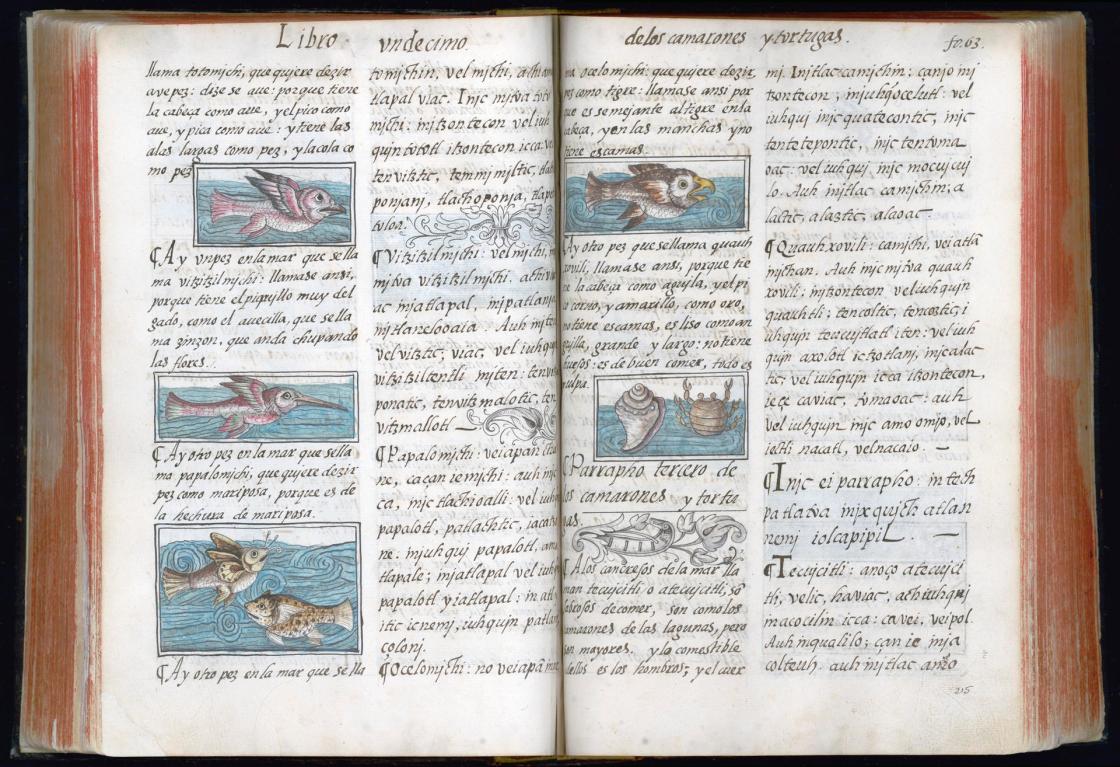 Libro undecimo
llama totomjchi, que quiere dezir
ave pez: dize se aue: porque tiene
la cabeça como aue, y el pico como
aue, y pica como aue: y tiene las
alas largas como pez, y la cola co
mo pez
¶ Ay vn pez en la mar que se lla
ma vitzitzilmjchi: llamase ansi,
porque tiene el piquillo muy del
gado, como el auecilla, que se lla
ma zinzon, que anda chupando
las flores.
¶ Ay otro pez en la mar que se lla
ma papalomjchi, que quiere dezir
pez como mariposa, porque es de
la hechura de mariposa.
¶ Ay otro pez en la mar que se lla
tomjchin, vel mjchi, 
tlapal viac. Injc mjtoa toto
mjchi: injtzontecon vel iuh
quin tototl itzontecon icca: vel
tenvitztic, temmjmjltic,
ponjanj, tlachoponja,
toloa.
¶ Vitzitzilmjchi: vel mjchi,
mjtoa vitzitzilmjchi.
ac injatlapal, injpatlanja
injtlaneloaia. Auh injten
vel vitztic, viac, vel iuhqui
vitzitziltentli injten: tenvitz
ponatic, tenvitzmalotic, ten
vitzmallotl
¶ Papalomjchi: veiapan
ne, ça çan ie mjchi: auh injc
ca, injc tlachioalli: vel iuh
papalotl, patlachtic,
ne: injuhqui papalotl,
tlapale; injatlapal vel iuh
papalotl yiatlapal: in atl
itic icnemj, iuhqujn patlan
colonj.
¶ Ocelomjchi: no veiapan
de los camarones y tortugas. fo. 63.
ma ocelomjchi: que quiere dezir,
pez como tigre: llamase ansi por
que es semejante al tigre en la
cabeça, y en las manchas y no
tiene escamas.
Ay otro pez que se llama quauh
xovili, llamase ansi, porque tie
ne la cabeça como aguyla, y el pi
co corvo, y amarillo, como oro,
no tiene escamas, es liso como an
guilla, grande y largo: no tiene
huesos: es de buen comer, todo es
pulpa.
¶ Parrapho tercero de
los camarones y tortu
gas.
¶ A los cancrejos de la mar lla
man tecujcitli o atecujcitli, sō
sabrosos de comer, son como los
camarones de las lagunas, pero
son mayores. y lo comestible
dellos es los hombros; y el cuer
mj. Injtlac camjchin: çanjo inj
tzontecon, injuhq̄ ocelutl: vel
iuhqui injc quatecontic, injc
tentetepontic, injc tentoma
oac: vel iuhquj, injc mocujcuj
lo. Auh injtlac camjchin, a
lactic, alaztic, alaoac
¶ Quauhxovili: camjchi, vei atlā
mjchan. Auh injc mjtoa quauh
xovili: injtzontecon vel iuhqujn
quauhtli; tencoltic, tencoztic; i
uhqujn teucujtlatl iten: vel iuh
qujn axolotl ic tzotlanj, injc alac
tic; vel iuhqujn icca itzontecon,
ieçe çaviac, tomaoac: auh
vel iuhqujn injc amo omjo, vel
içeltli nacatl, velnacaio.
¶ Injc ei parrapho: intech
patlatoa injxqujch atlan
nemj iolcapipil.
¶ Tecujcitli: anoço atecujci
tli, velic, haviac, achi iuhquj
in acocilin icca: ca vei, veipol.
Auh inqualilo; çan ie injia
colteuh. auh injtlac anoço
215